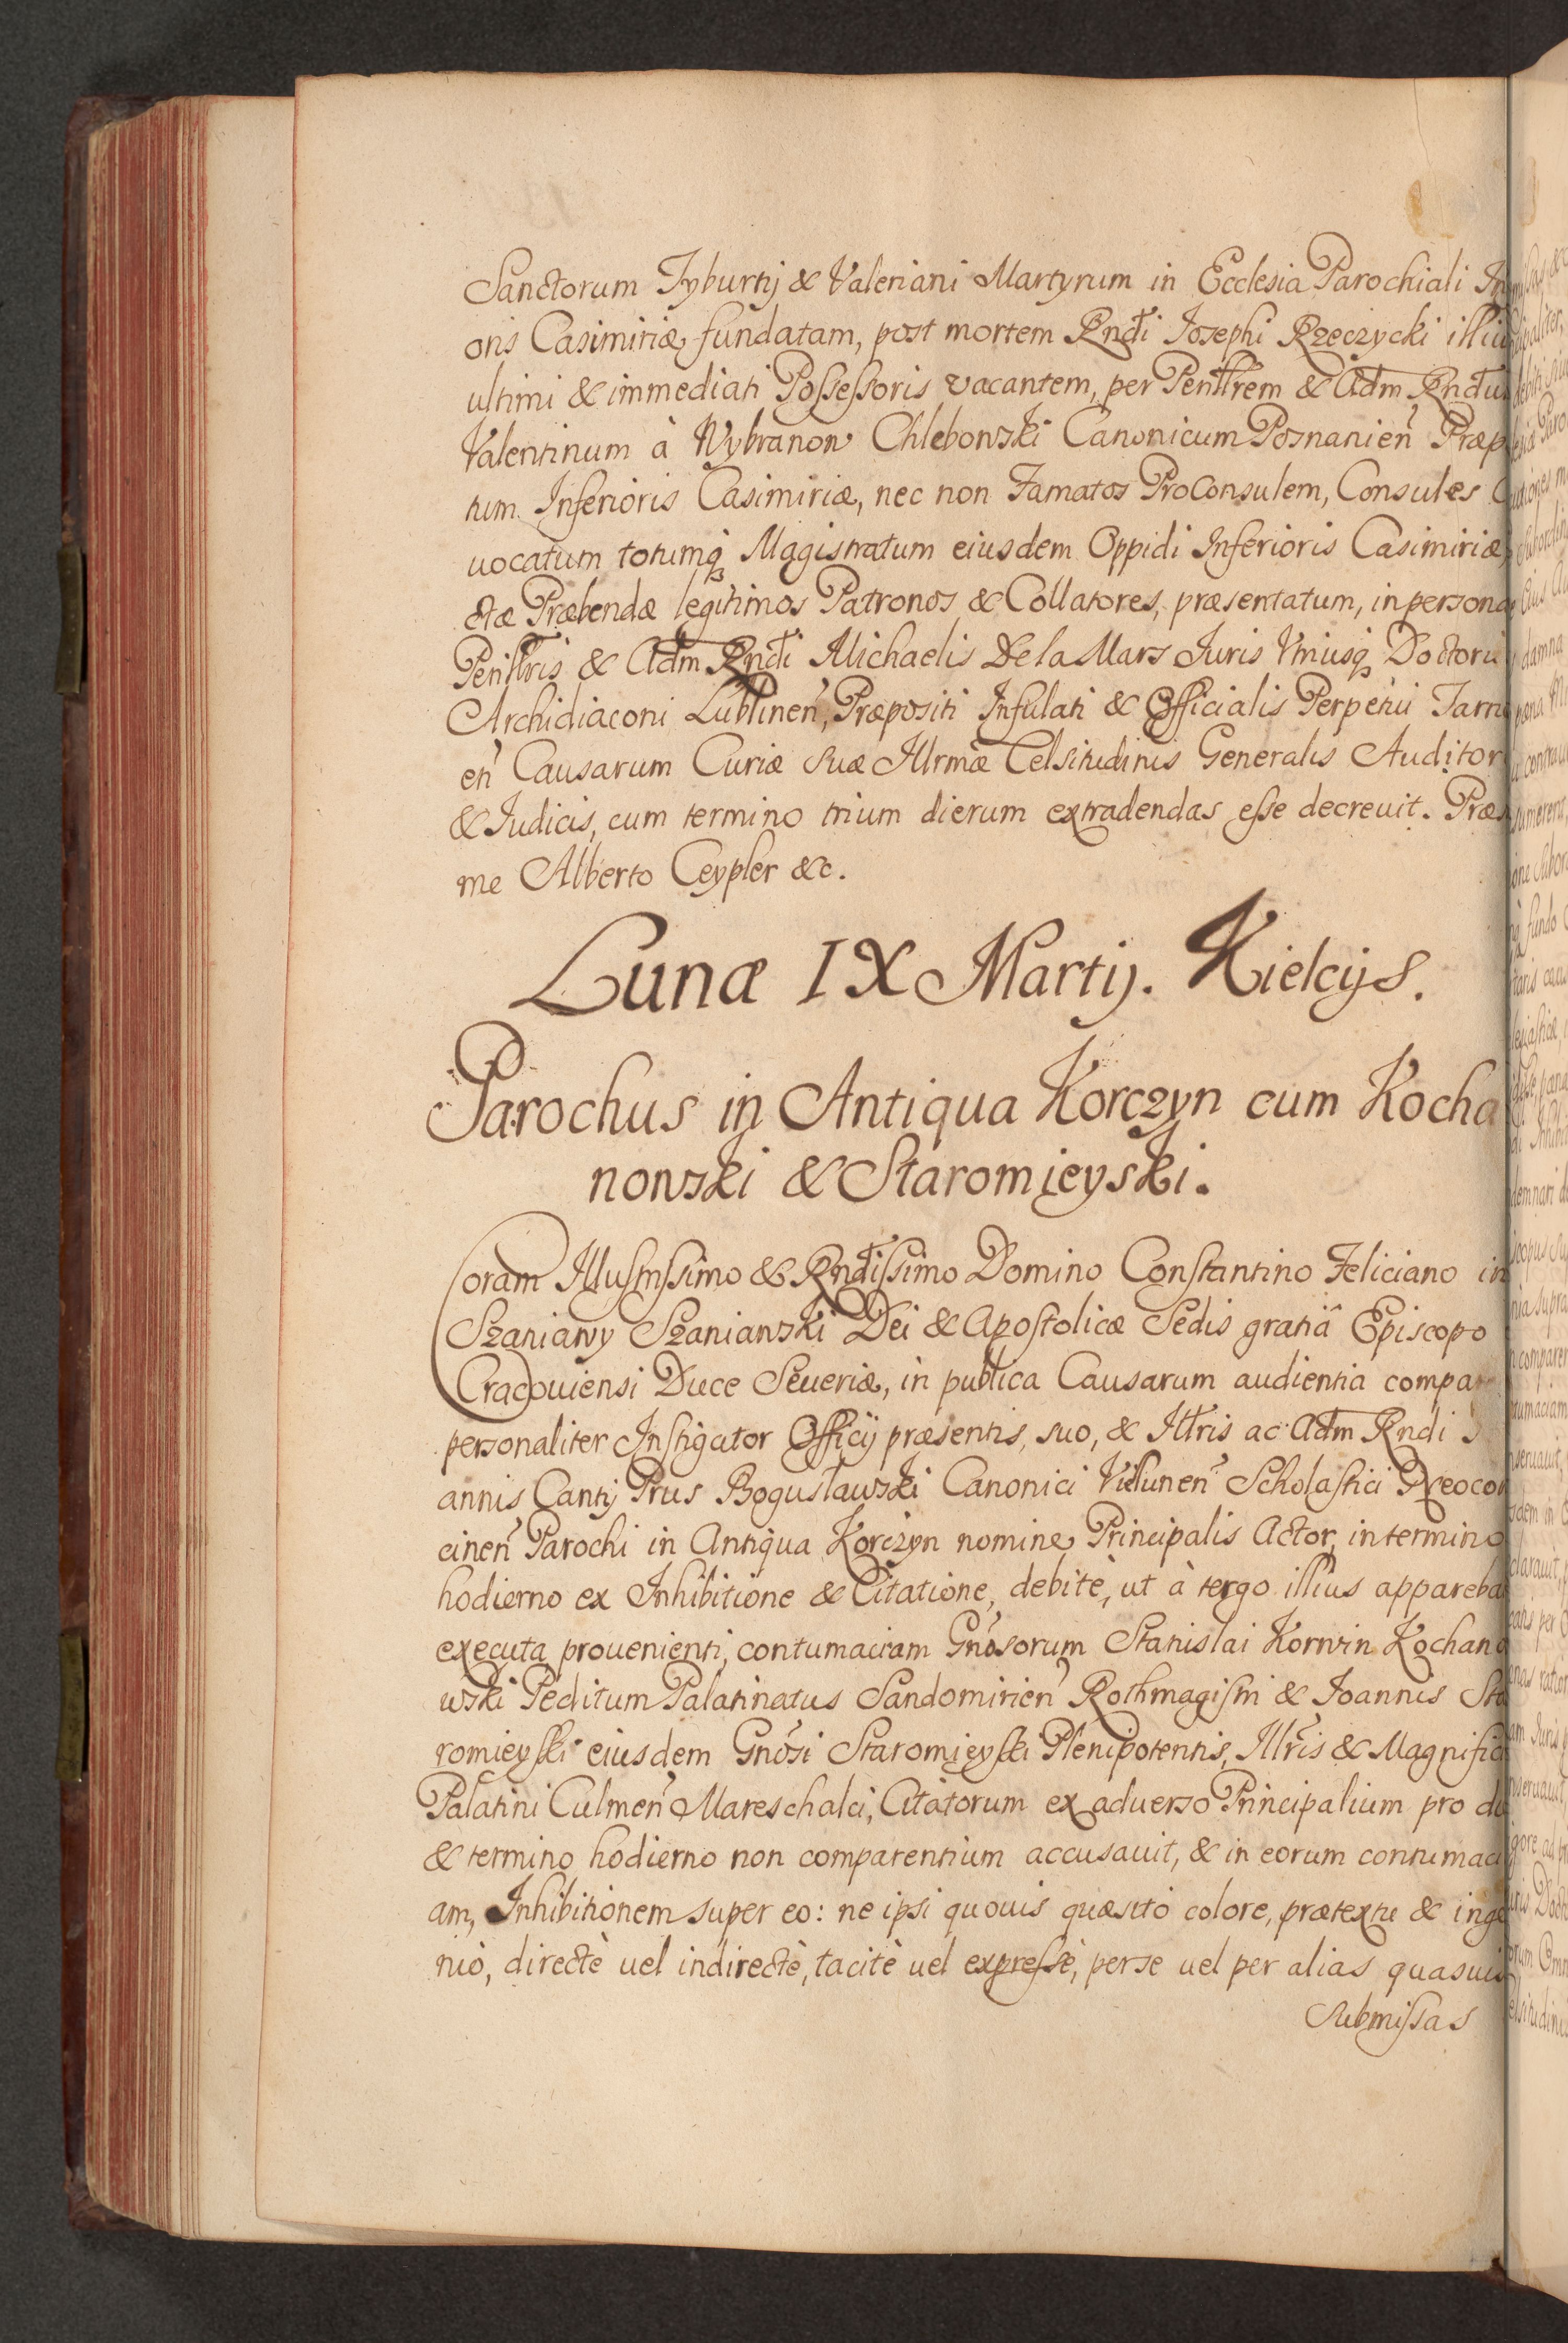 Sanctorum Tyburtij & Valeriani Martyrum in Ecclesia Parochiali In
oris Casimiriæ fundatam, post mortem Rndi Josephi Rzeczycki illiu
ultimi & immediati Possessoris vacantem, per Penillrem & Adm Rndu
Valentinum à Wybranow Chlebowski Canonicum Posnanien Præp
tum Inferioris Casimiriæ, nec non Famatos ProConsulem, Consules
uocatum totumq Magistratum eiusdem Oppidi Inferioris Casimiriæ
ctæ Præbendæ legitimos Patronos & Collatores, præsentatum, in persona
Perillris & Adm Rndi Michaelis De la Mars Juris Vtriusq Doctoris
Archidiaconi Lublinen, Præpositi Infulati & Officialis Perpetui Tarno
en Causarum Curiæ suæ Illrmæ Celsitudinis Generalis Auditor
& Iudicis, cum termino trium dierum extradendas esse decreuit. Præs
me Alberto Ceypler &c.
Lunæ IX Martij. Kielcijs.
Parochus in Antiqua Korczyn cum Kocha
nowski & Staromieyski.
Coram Illustrissimo & Rndissimo Domino Constantino Feliciano in
Szaniawy Szaniawski Dei & Apostolicæ Sedis gratiâ Episcopo
Cracouiensi Duce Seueriæ, in publica Causarum audientia compar
personaliter Instigator Officij præsentis, suo, & Illris ac Adm Rndi
annis Cantij Prus Bogusławski Canonici Vielunen Scholastici
cinen Parochi in Antiqua Korczyn nomine Principalis Actor, in termino
hodierno ex Inhibitione & Citatione, debitè, ut à tergo illius appareba
executa prouenienti, contumaciam Gnosorum Stanislai Korwin Kochano
wski Peditum Palatinatus Sandomirien Rothmagistri & Joannis Sta
romieyski eiusdem Gnosi Staromieyski Plenipotentis, Illris & Magnifici
Palatini Culmen Mareschalci, Citatorum ex aduerso Principalium pro di
& termino hodierno non comparentium accusauit, & in eorum contumaci
am, Inhibitionem super eo: ne ipsi quouis quæsito colore, prætextu & inge
niò, directè uel indirectè, tacitè uel expressè, per se uel per alias quasuis
submissas